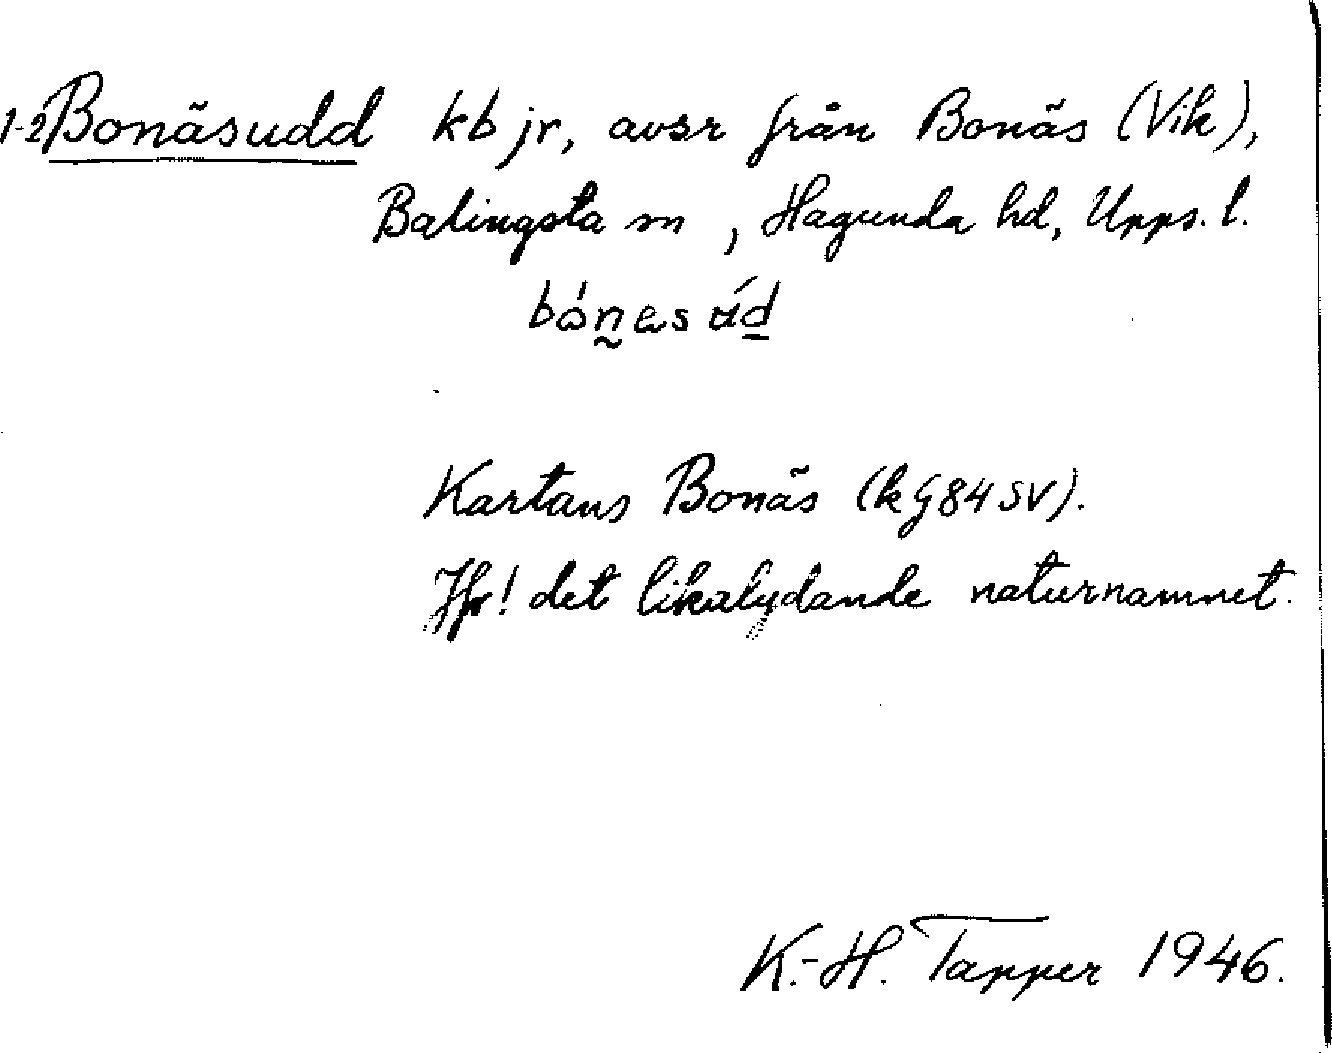 1-2 Bonäsudd kb jr, avsr från Bonäs (Vik),
Balingsta sn, Hagunda hd, Upps. l.
bónes úd
Kartans Bonäs (kG84SV).
Jfr! det likalydande naturnamnet.
K.-H. Tapper 1946.